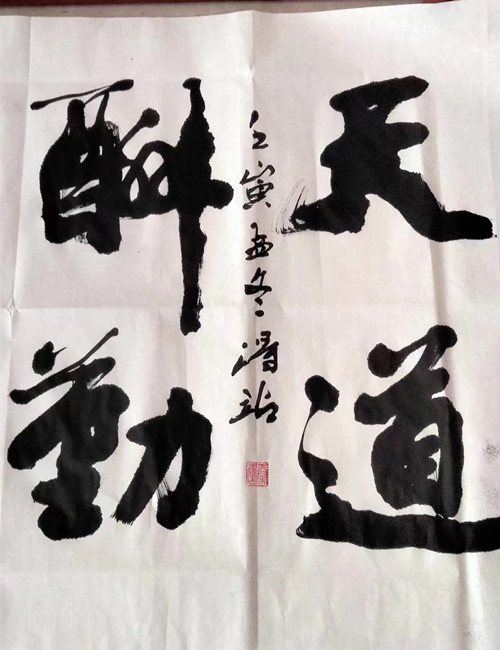 天道
酬勤
壬寅孟冬